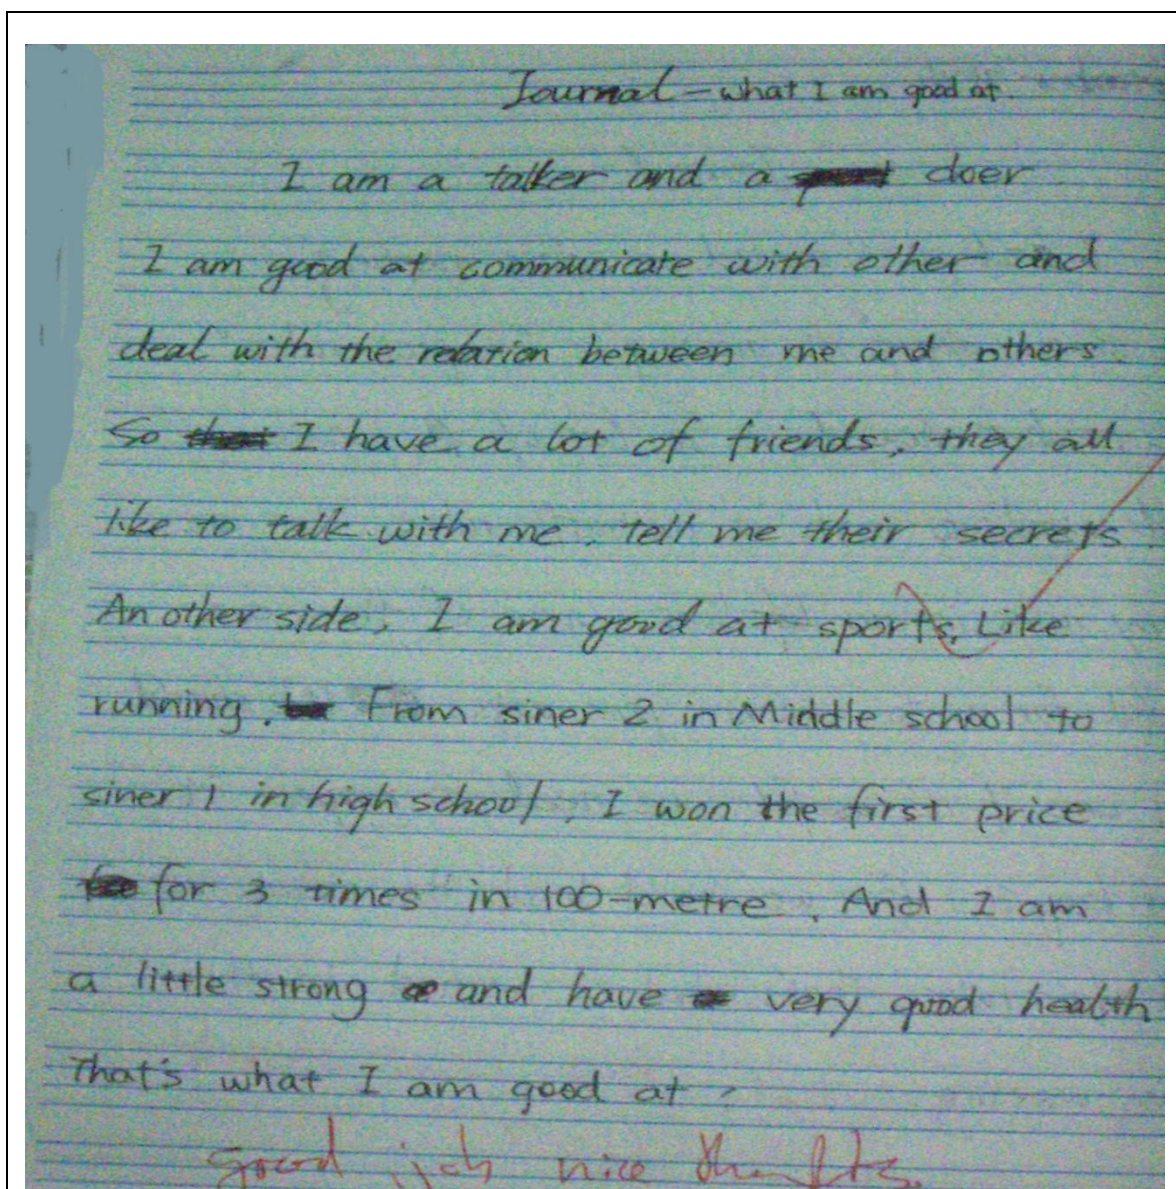 Journal - what I am good at.
I am a talker and a doer
I am good at communicate with other and
deal with the relation between me and others.
So that I have a lot of friends, they all
like to talk with me, tell me their secrets.
An other side, I am good at sports. Like
running. From siner 2 in Middle school to
siner 1 in high school, I won the first price
for 3 times in 100-metre. And I am
a little strong and have very good health
That's what I am good at.
Good job nice